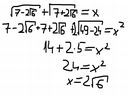 √(7-2√6) + √(7+2√6) = x
7-2√6+7+2√6+2√(49-24) = x²
14+2·5 = x²
24 = x²
x = 2√6